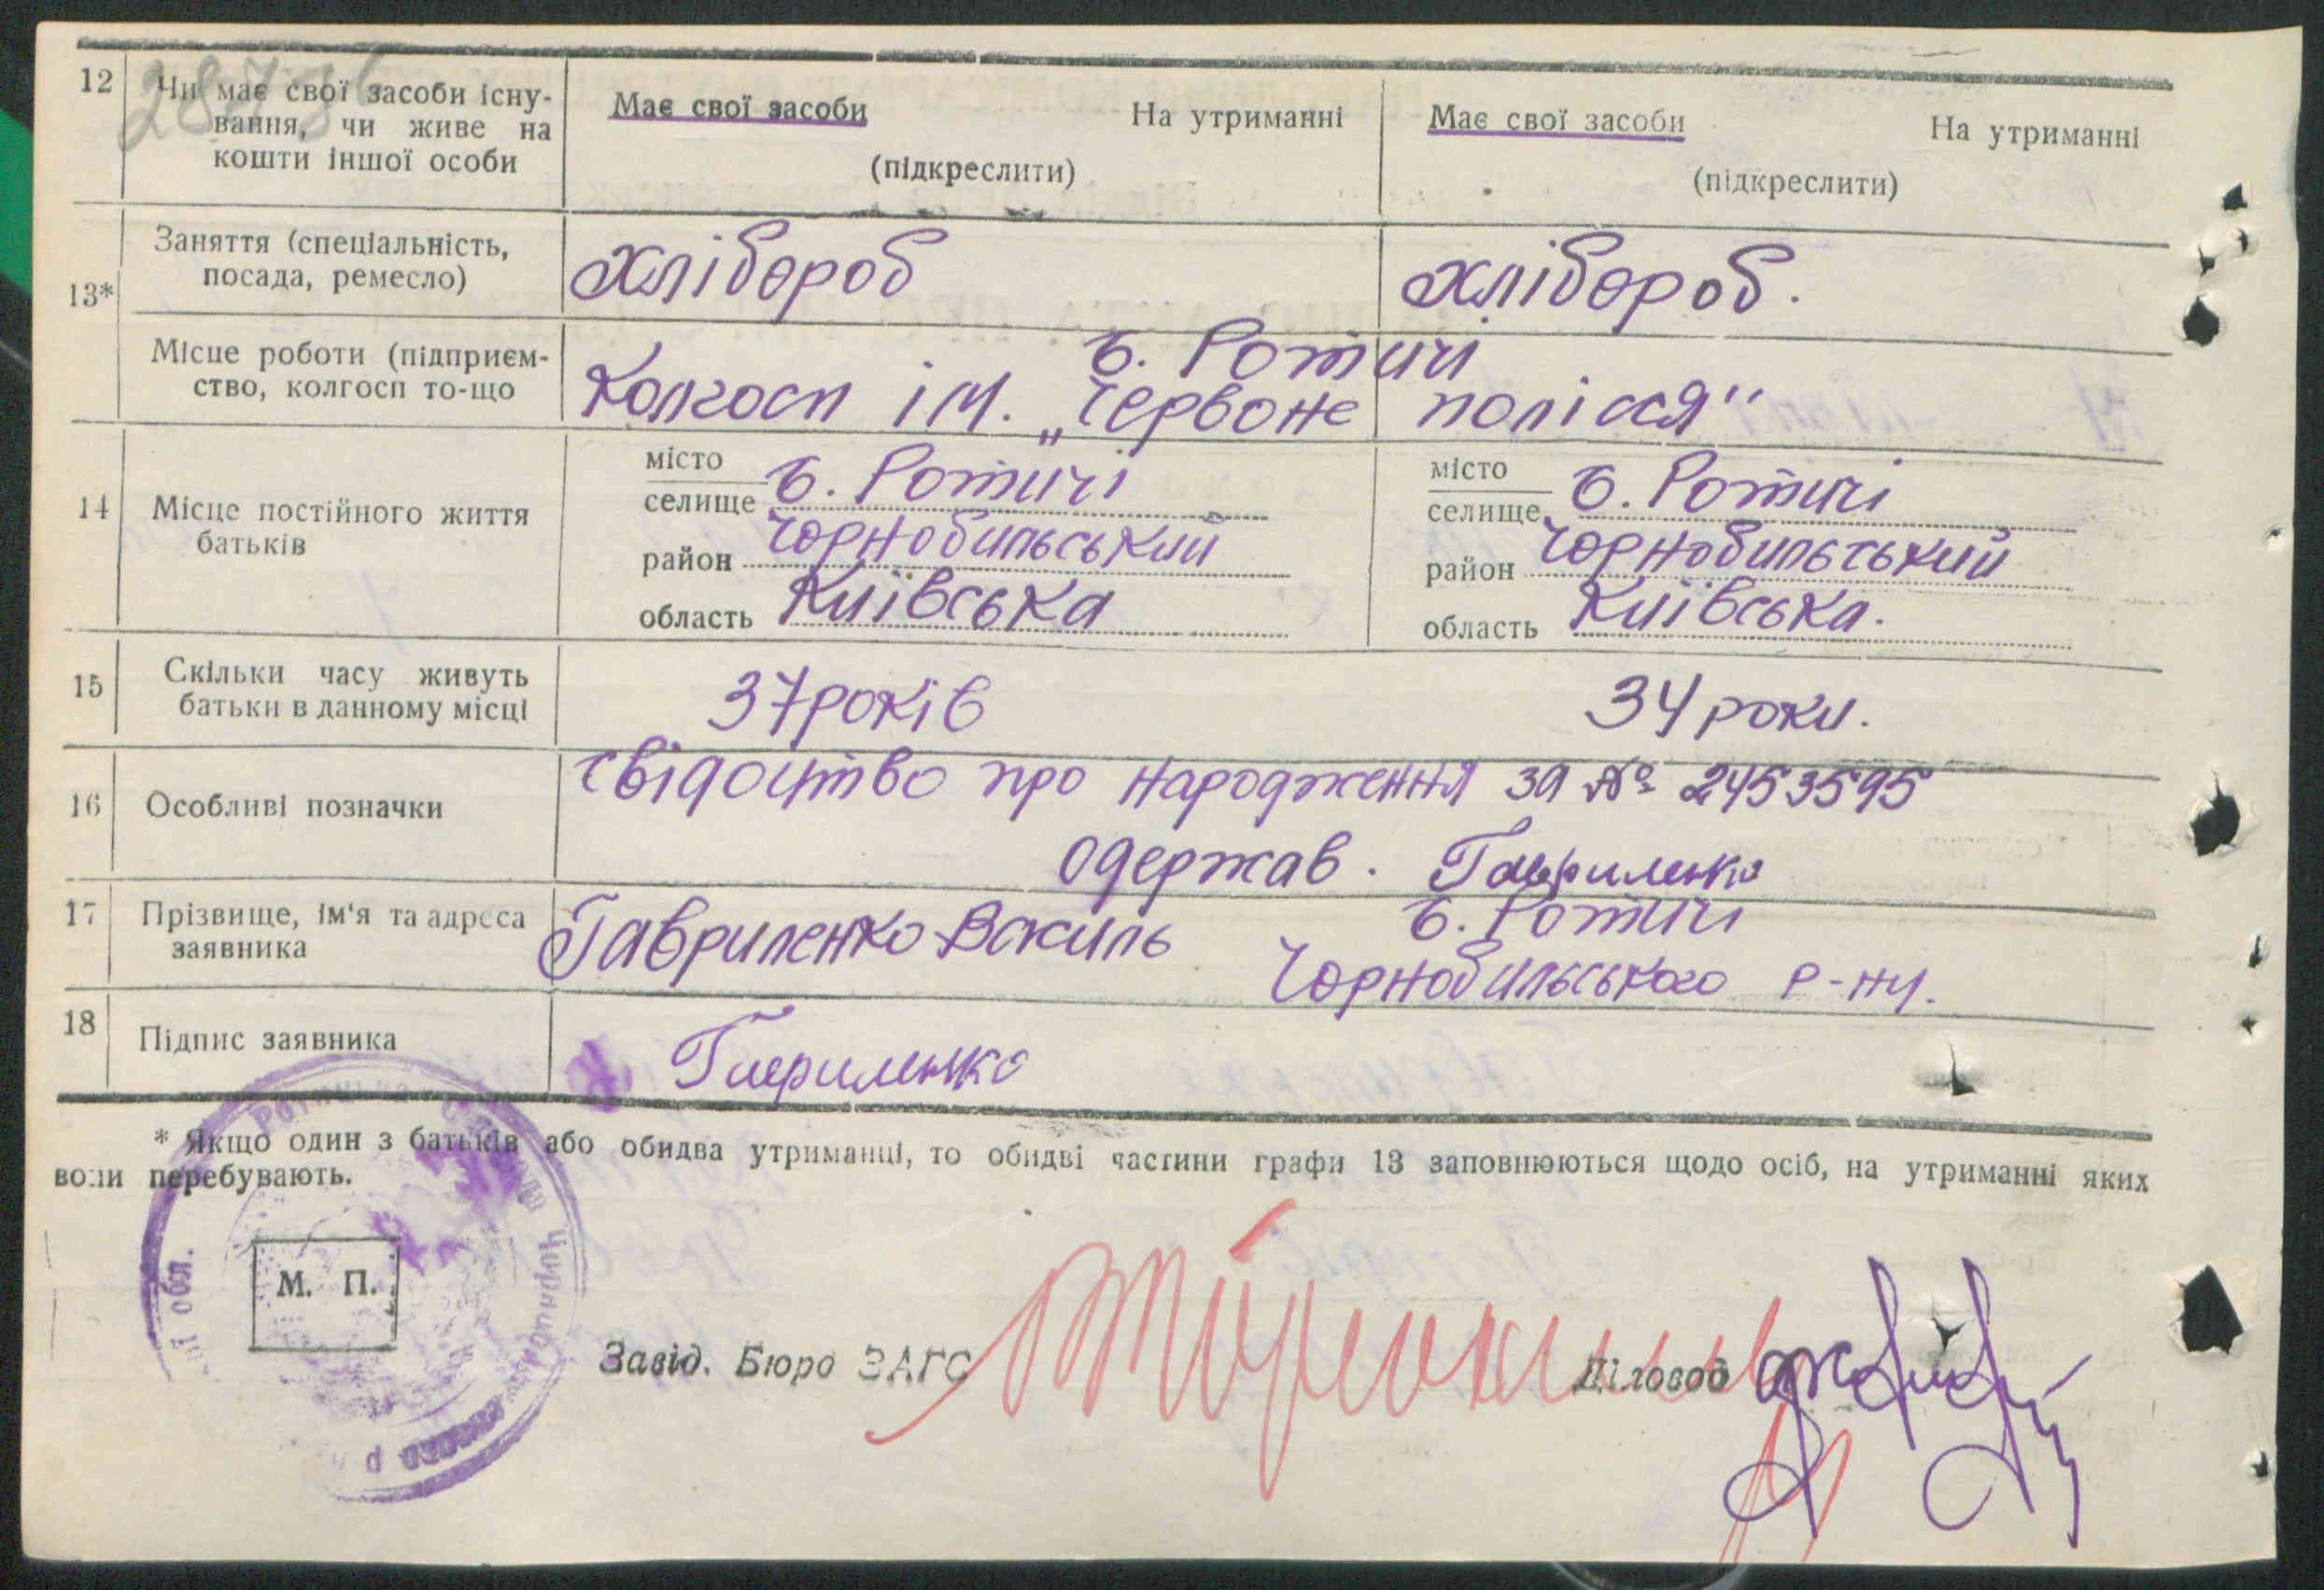 12
Чи має свої засоби існу-
вання, чи живе на
кошти іншої особи
Має свої засоби На утриманні
(підкреслити)
Має свої засоби На утриманні
(підкреслити)
13*
Заняття (спеціальність,
посада, ремесло)
Хлібороб
хлібороб.
Місце роботи (підприєм-
ство, колгосп то-що
с. Ротичі
Колгосп ім. „Червоне полісся"
14
Місце постійного життя
батьків
місто
селище с. Ротичі
район Чорнобильський
область Київська
місто
селище с. Ротичі
район Чорнобильський
область Київська.
15
Скільки часу живуть
батьки в данному місці
37 років
34 роки.
16
Особливі позначки
свідоцтво про народження за № 2453595
одержав. Гавриленко
17
Прізвище, ім'я та адреса
заявника
Гавриленко Василь
с. Ротичі
Чорнобильського р-ну.
18
Підпис заявника
Гавриленко
* Якщо один з батьків або обидва утриманці, то обидві частини графи 13 заповнюються щодо осіб, на утриманні яких
вони перебувають.
обл.
М. П.
Завід. Бюро ЗАГС
Діловод